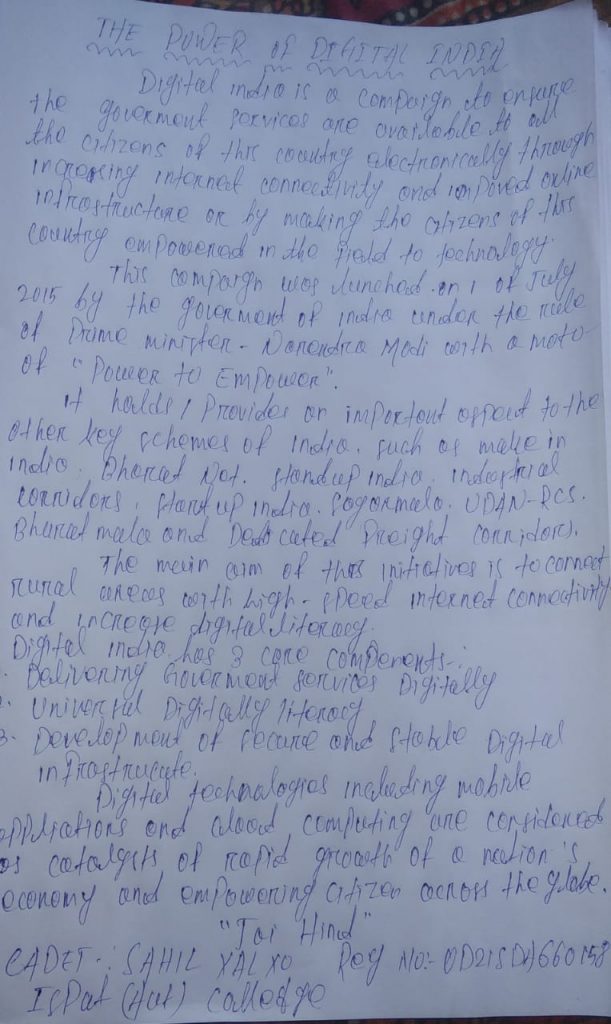 THE POWER of DIGITAL INDIA
Digital india is a compaign to ensure
the goverment services are available to all
the citizens of this country electronically through
increasing internet connectivity and impoved online
infrastructure or by making the citizens of this
country empowered in the field to technology.
This compaign was lunched on 1 of July
2015 by the goverment of india under the rule
of Prime minister - Narendra Modi with a moto
of "Power to Empower".
it holds / Provides an important aspect to the
other key schemes of India. such as make in
india. Bharat Net. standup india. industrial
corridors, start up india. Sagarmala. UDAN-RCS.
Bharat mala and Dedicated Freight corridors.
The main aim of this initiatives is to connect
rural areas with high-speed internet connectivity
and increase digital literacy.
Digital india has 3 core components-:
Delivering Goverment services Digitally
2. Universal Digitally literacy
3. Development of secure and stable Digital
infrastrucate.
Digital technologies including mobile
applications and cloud computing are considered
as catalysts of rapid growth of a nation's
economy and empowering citizen across the globe.
"Jai Hind"
CADET-: SAHIL XALXO Reg No:- OD21SDA660158
IsPat (Aut) college